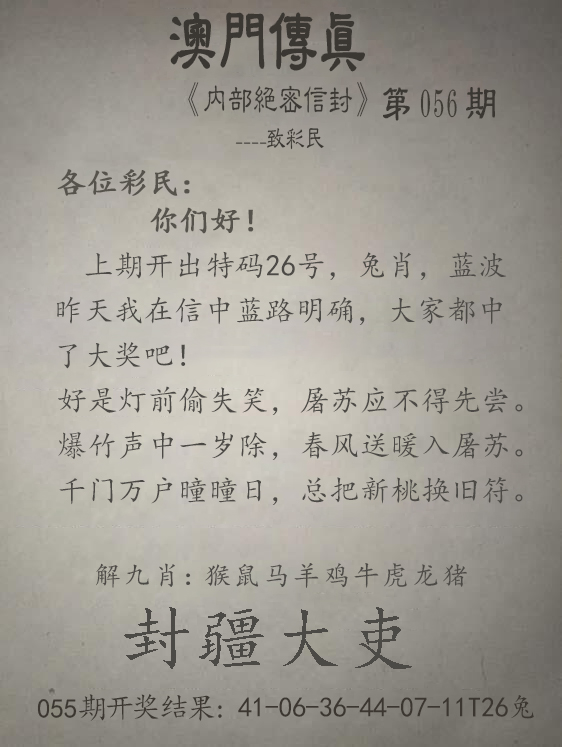 澳門傳眞
《内部絕密信封》第056期
----致彩民
各位彩民：
你们好！
上期开出特码26号，兔肖，蓝波
昨天我在信中蓝路明确，大家都中
了大奖吧！
好是灯前偷失笑，屠苏应不得先尝。
爆竹声中一岁除，春风送暖入屠苏。
千门万户曈曈日，总把新桃换旧符。
解九肖：猴鼠马羊鸡牛虎龙猪
封疆大吏
055期开奖结果：41-06-36-44-07-11T26兔